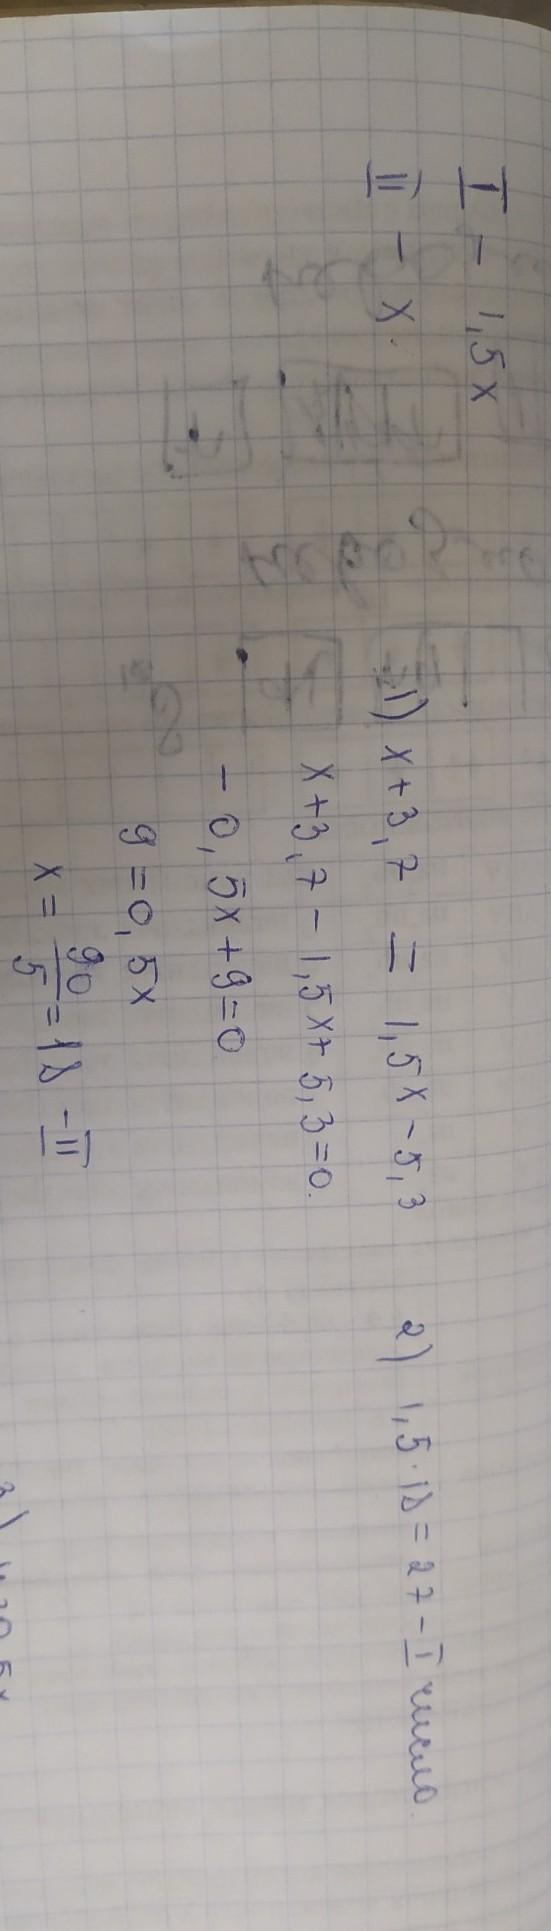 I - 1,5x
II - x.
1) x+3,7 = 1,5x-5,3
x+3,7-1,5x+5,3=0.
-0,5x+9=0
9=0,5x
x=90/5=18 -II
2) 1,5·18=27-I число.